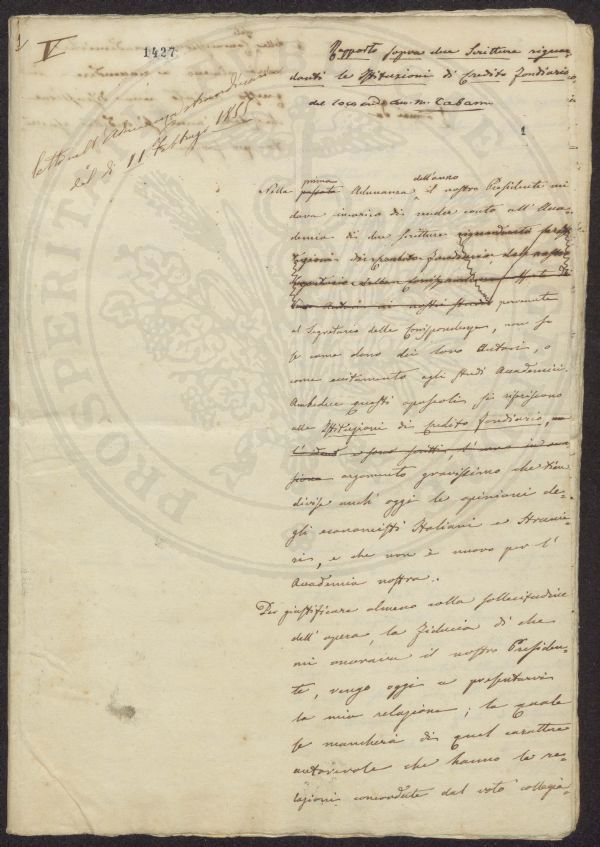 1
V
1427
Rapporto sopra due Scritture riguar-
danti le Istituzioni di Credito Fondiario
del Socio ord. Avv. M. Tabarrini
1
letto nell'Adunanza straordinaria
del dì 11 Febbrajo 1855
prima dell'anno
Nella passata Adunanza, il nostro Presidente mi
dava incarico di render conto all'Acca-
demia di due Scritture riguardanti
pervenute
al Segretario delle Corrispondenze, non so
se come dono dei loro Autori, o
come eccitamento agli studi Accademici.
Ambedue questi opuscoli si riferiscono
alle Istituzioni di Credito fondiario,
argomento gravissimo che tien
divise anch'oggi le opinioni de-
gli economisti Italiani e Stranie-
ri, e che non è nuovo per l'
Accademia nostra.
Per giustificare almeno colla sollecitudine
dell'opera, la fiducia di che
mi onorava il nostro Presiden-
te, vengo oggi a presentarvi
la mia relazione; la quale
se mancherà di quel carattere
autorevole che hanno le re-
lazioni concordate dal voto collegia-
PROSPERITÀ